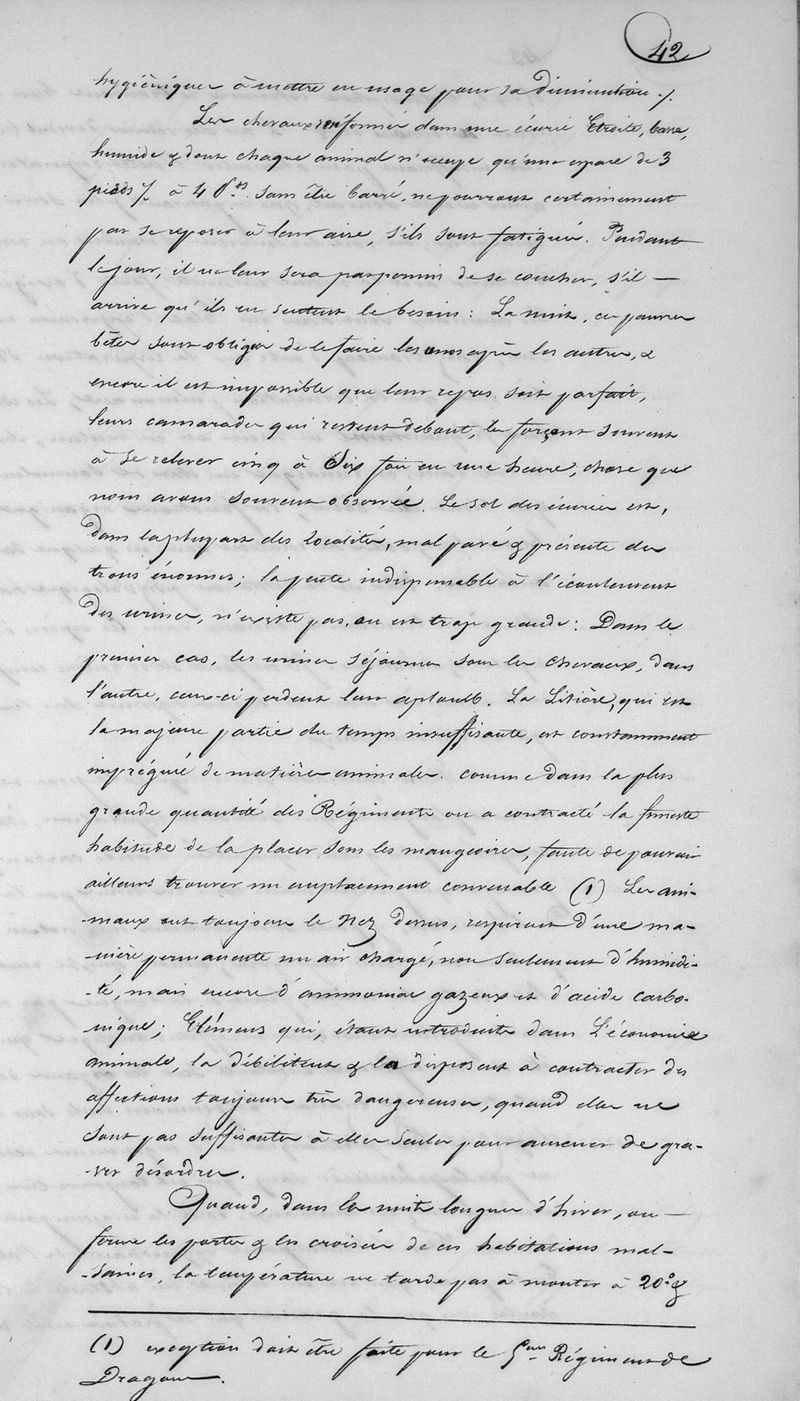 42
hygiéniques à mettre en usage pour sa diminution ./.
Les chevaux renfermés dans une écurie Etroite, basse,
humide & dont chaque animal n'occupe qu'un espace de 3
pieds ½ à 4 Pds. sans être barré, ne pourront certainement
pas se reposer à leur aise, s'ils sont fatigués. Pendant
le jour, il ne leur sera pas permis de se coucher, s'il —
arrive qu'ils en sentent le besoin : La nuit, ces pauvres
bêtes sont obligées de le faire les unes après les autres, &
encore il est impossible que leur repos soit parfait,
leurs camarades qui restent debout, les forçant souvent
à se relever cinq à Six fois en une heure, chose que
nous avons souvent observée. Le sol des écuries est,
dans la plupart des localités, mal pavé & présente des
trous énormes; la pente indispensable à l'écoulement
des urines, n'existe pas, ou est trop grande : Dans le
premier cas, les urines séjournent sous les chevaux, dans
l'autre, ceux-ci perdent leur aplomb. La Litière, qui est
la majeure partie du temps insuffisante, est constamment
imprégnée de matières animales. comme dans la plus
grande quantité des Régiments on a contracté la funeste
habitude de la placer sous les mangeoires, faute de pouvoir
ailleurs trouver un emplacement convenable (1) Les ani-
-maux ont toujours le Nez dessus, respirent d'une ma-
-nière permanente un air chargé, non seulement d'humidi-
-té, mais encore d'ammoniac gazeux et d'acide carbo-
-nique; Eléments qui, étant introduits dans L'économie
animale, la débilitent & la disposent à contracter des
affections toujours très dangereuses, quand elles ne
sont pas suffisantes à elles seules pour amener de gra-
-ves désordres.
Quand, dans les nuits longues d'hiver, on —
ferme les portes & les croisées de ces habitations mal-
-saines, la température ne tarde pas à monter à 20° &
(1) exception doit être faite pour le 5eme Régiment de
Dragons.